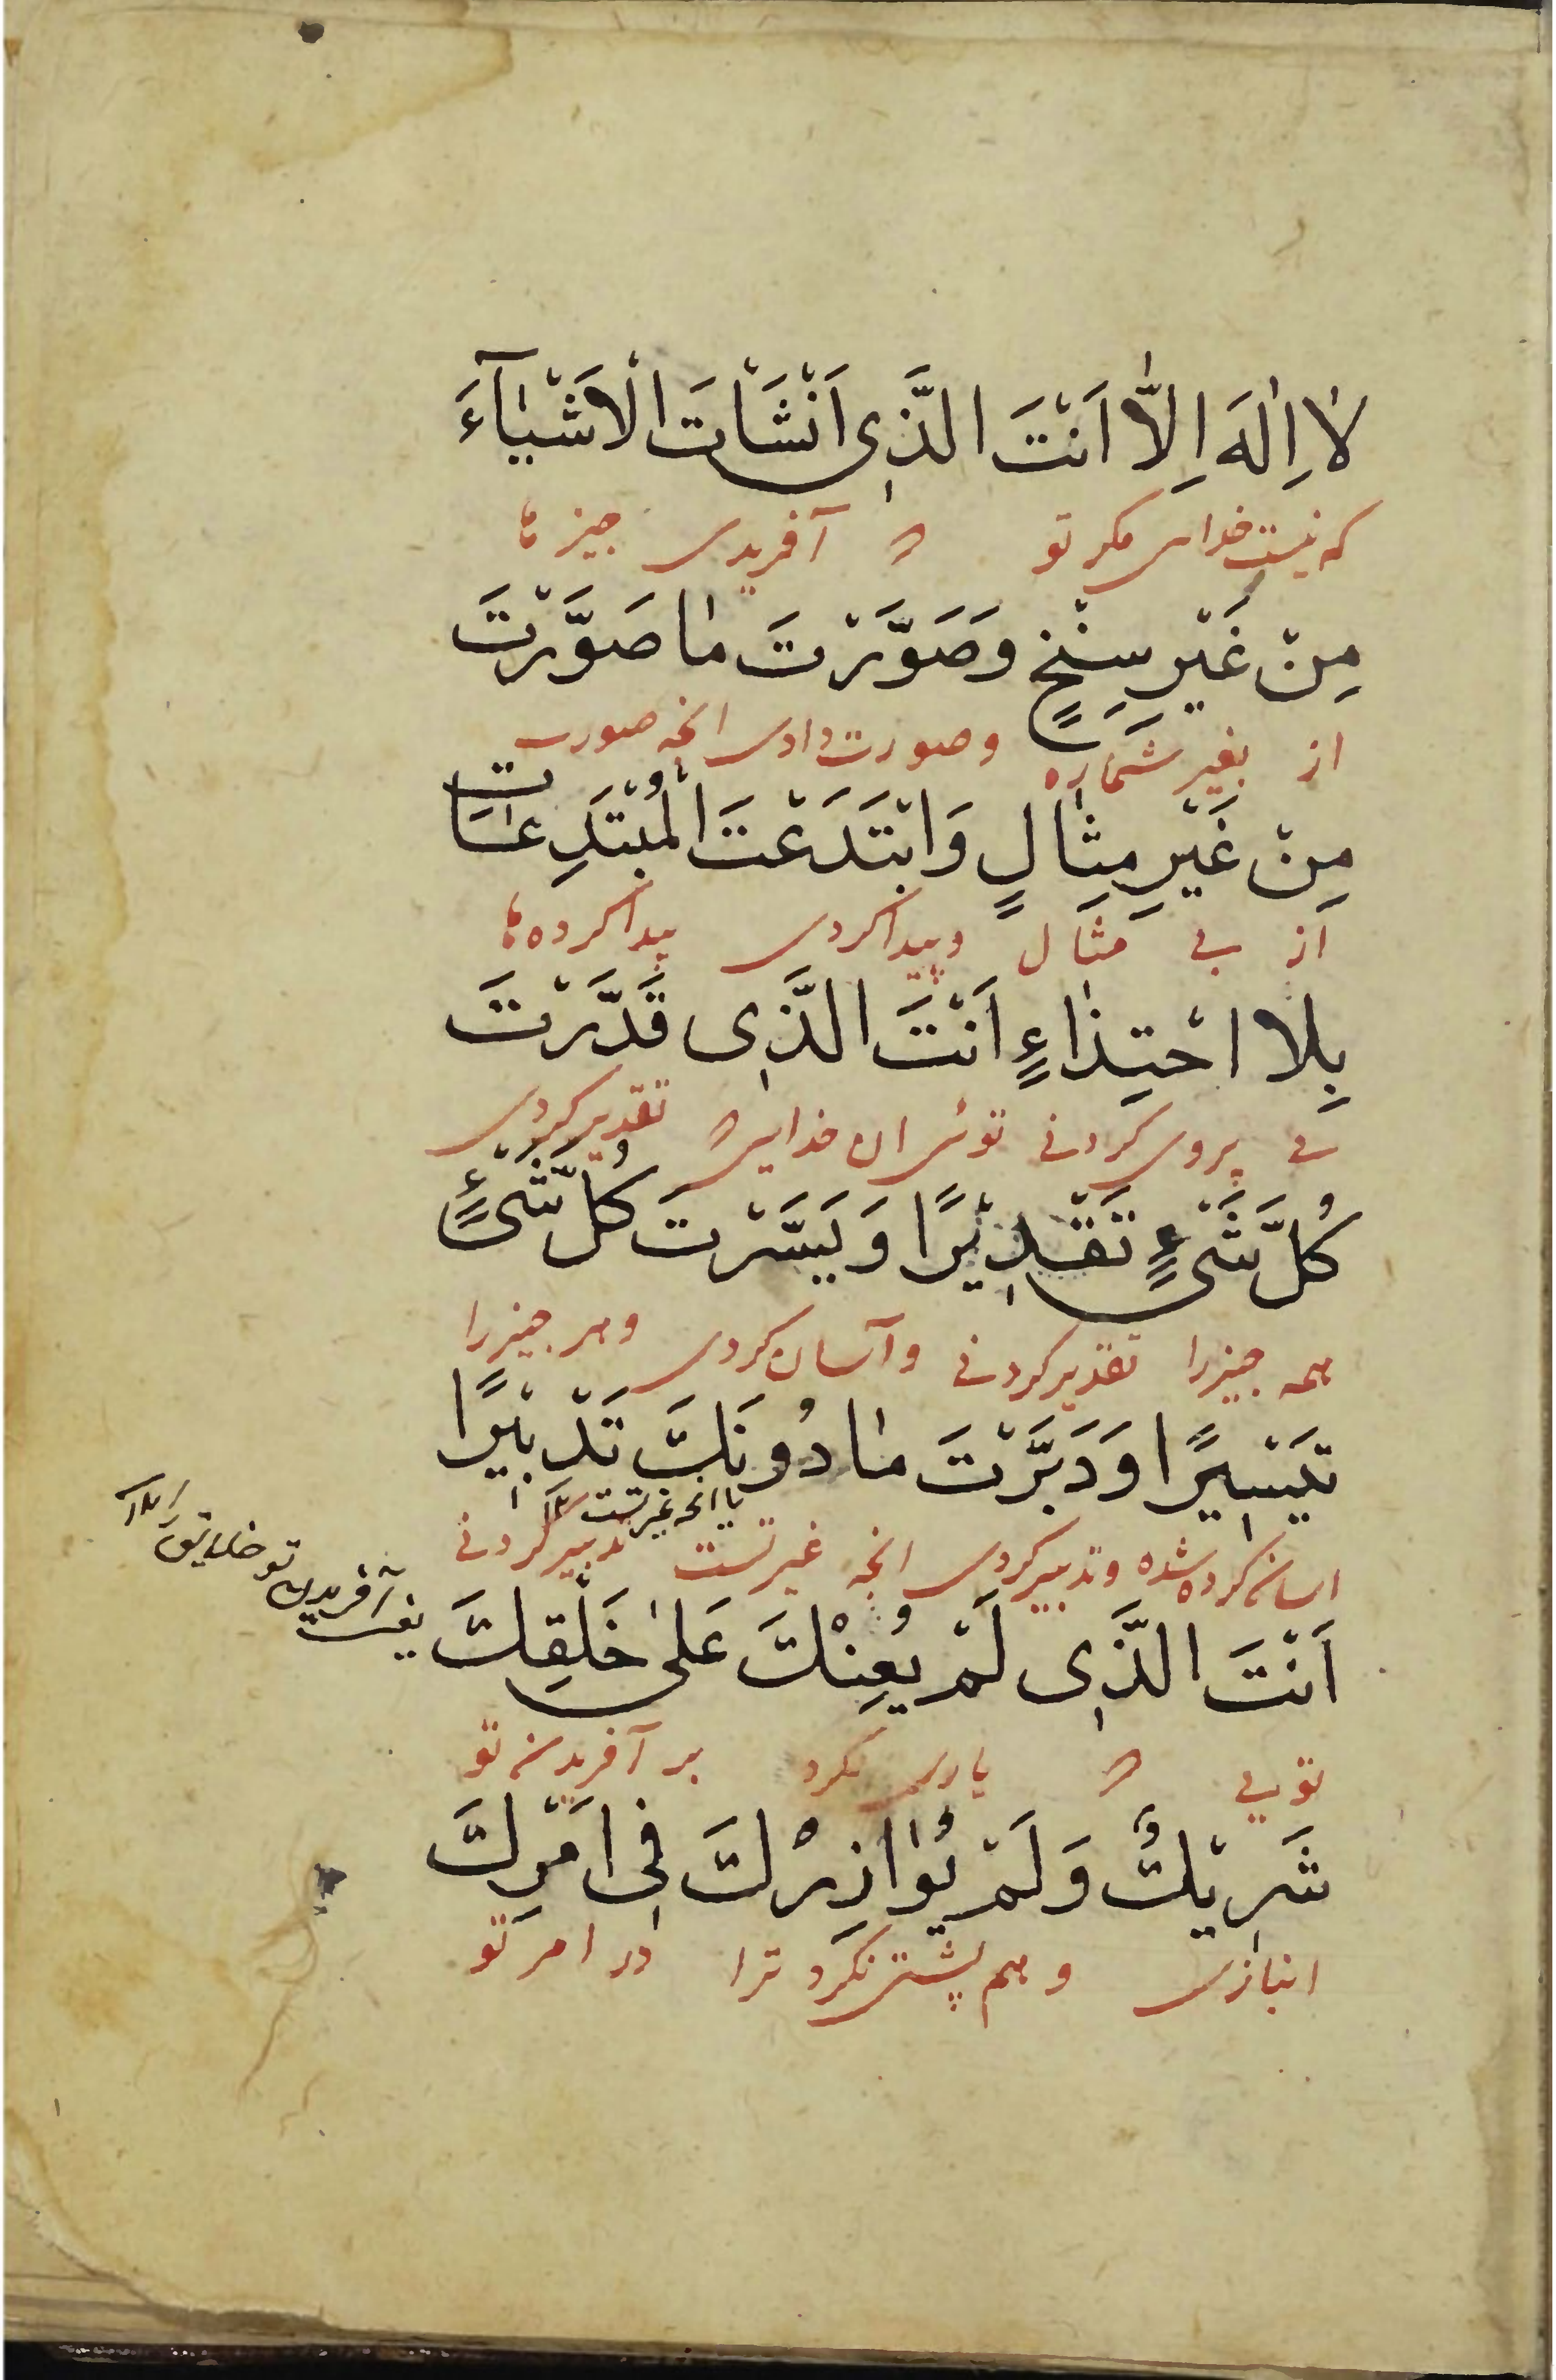 لٰا اِلٰهَ اِلّٰا اَنْتَ الَّذِی اَنْشَاْتَ الْاَشْیٰآءَ
که نیست خدای مکر تو که آفریدی جیزها
مِنْ غَیْرِ سِنْخٍ وَصَوَّرْتَ مٰا صَوَّرْتَ
از بغیر شماره وصورت دادی انچه صورت
مِنْ غَیْرِ مِثٰالٍ وَابْتَدَعْتَ الْمُبْتَدِعٰاتِ
از بی مثال وپیدا کردی پیدا کرده ها
بِلا احْتِذٰاءٍ اَنْتَ الَّذِی قَدَّرْتَ
بی پروی کردنی توئی ان خدایی که تقدیر کردی
کُلَّ شَیْءٍ تَقْدِیْرًا وَیَسَّرْتَ کُلَّ شَیْءٍ
همه جیزرا تقدیر کردنی وآسان کردی وهر جیزرا
تَیْسِیْرًا وَدَبَّرْتَ مٰا دُونَكَ تَدْبِیْرًا
یا انچه غیر تست
اسان کرده شده وتدبیر کردی انچه غیر تست تدبیر کردنی
اَنْتَ الَّذِی لَمْ یُعِنْكَ عَلیٰ خَلْقِكَ
یعنی آفریدی تو خلایق را
تویی که یاری نکرد بر آفریدن تو
شَرِیْكٌ وَلَمْ یُوٰازِرْكَ فِی اَمْرِكَ
انبازی وهم پشتی نکرد ترا در امر تو